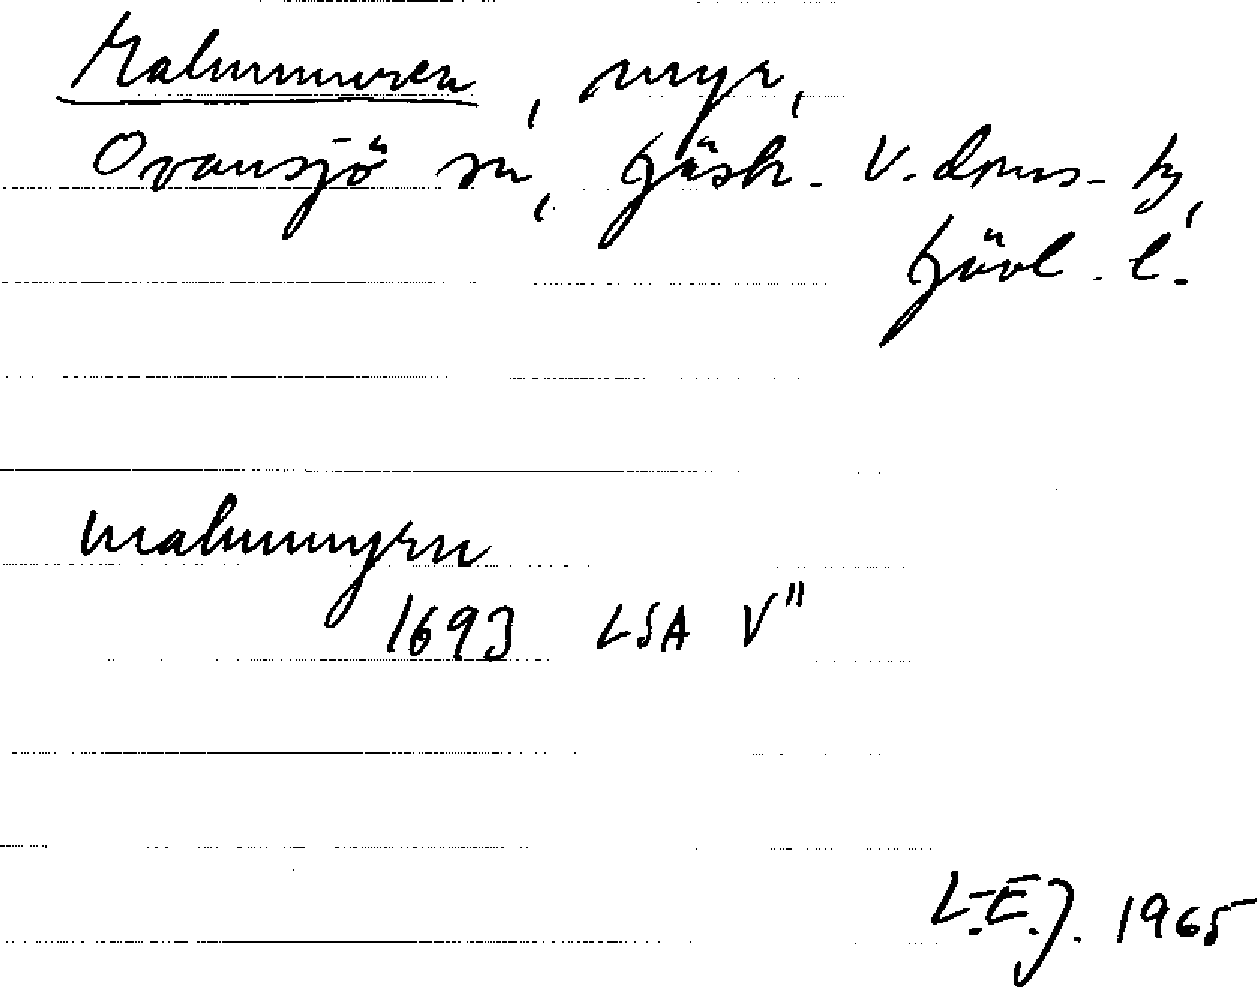 Malmmuren, myr,
Ovansjö sn, Gästr. V. doms. tg,
Gävl. l.
Malmmyrn
1693 LSA V"
L.-E.J. 1965